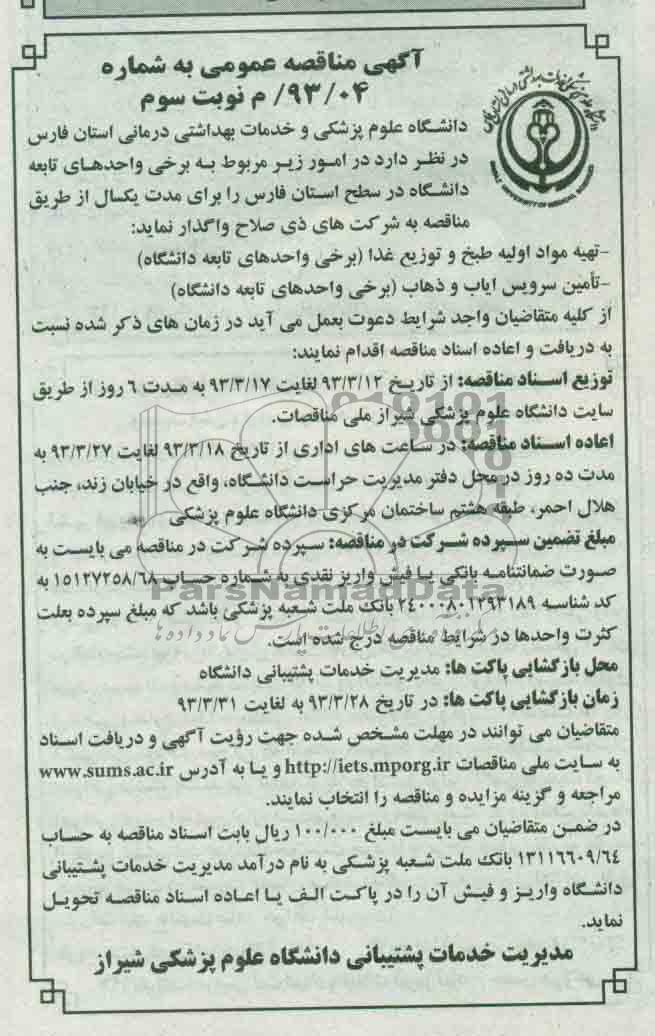 آگهی مناقصه عمومی به شماره
۹۳/۰۴/ م نوبت سوم
دانشگاه علوم پزشکی و خدمات بهداشتی درمانی استان فارس
در نظر دارد در امور زیر مربوط به برخی واحدهای تابعه
دانشگاه در سطح استان فارس را برای مدت یکسال از طریق
مناقصه به شرکت های ذی صلاح واگذار نماید:
-تهیه مواد اولیه طبخ و توزیع غذا (برخی واحدهای تابعه دانشگاه)
-تأمین سرویس ایاب و ذهاب (برخی واحدهای تابعه دانشگاه)
از کلیه متقاضیان واجد شرایط دعوت بعمل می آید در زمان های ذکر شده نسبت
به دریافت و اعاده اسناد مناقصه اقدام نمایند:
توزیع اسناد مناقصه: از تاریخ ۹۳/۳/۱۲ لغایت ۹۳/۳/۱۷ به مدت ٦ روز از طریق
سایت دانشگاه علوم پزشکی شیراز ملی مناقصات.
اعاده اسناد مناقصه: در ساعت های اداری از تاریخ ۹۳/۳/۱۸ لغایت ۹۳/۳/۲۷ به
مدت ده روز در محل دفتر مدیریت حراست دانشگاه، واقع در خیابان زند، جنب
هلال احمر، طبقه هشتم ساختمان مرکزی دانشگاه علوم پزشکی
مبلغ تضمین سپرده شرکت در مناقصه: سپرده شرکت در مناقصه می بایست به
صورت ضمانتنامه بانکی یا فیش واریز نقدی به شماره حساب ۱۵۱۲۷۲۵۸/٦۸ به
کد شناسه ۲٤۰۰۰۸۰۱۲۹۳۱۸۹ بانک ملت شعبه پزشکی باشد که مبلغ سپرده بعلت
کثرت واحدها در شرایط مناقصه درج شده است.
محل بازگشایی پاکت ها: مدیریت خدمات پشتیبانی دانشگاه
زمان بازگشایی پاکت ها: در تاریخ ۹۳/۳/۲۸ به لغایت ۹۳/۳/۳۱
متقاضیان می توانند در مهلت مشخص شده جهت رؤیت آگهی و دریافت اسناد
به سایت ملی مناقصات http://iets.mporg.ir و یا به آدرس www.sums.ac.ir
مراجعه و گزینه مزایده و مناقصه را انتخاب نمایند.
در ضمن متقاضیان می بایست مبلغ ۱۰۰/۰۰۰ ریال بابت اسناد مناقصه به حساب
۱۳۱۱٦٦۰۹/٦٤ بانک ملت شعبه پزشکی به نام درآمد مدیریت خدمات پشتیبانی
دانشگاه واریز و فیش آن را در پاکت الف یا اعاده اسناد مناقصه تحویل
نماید.
مدیریت خدمات پشتیبانی دانشگاه علوم پزشکی شیراز
ParsNamadData